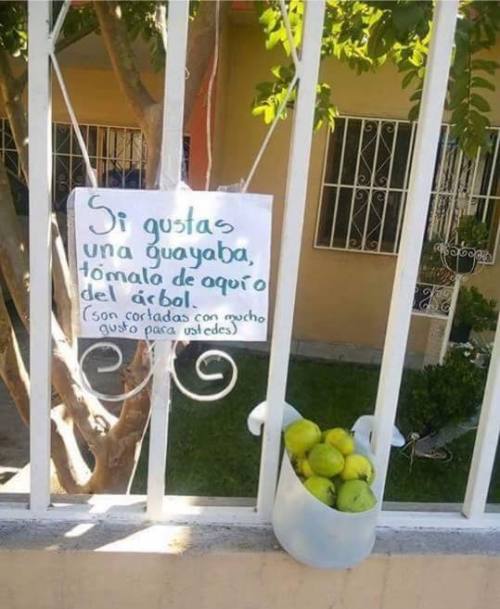 Si gustas
una guayaba,
tómala de aquí o
del árbol.
(son cortadas con mucho
gusto para ustedes)